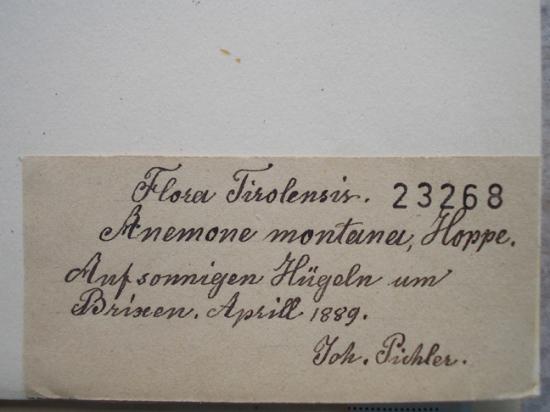 Flora Tirolensis. 23268
Anemone montana, Hoppe.
Auf sonnigen Hügeln um
Brixen. Aprill 1889.
Joh. Pichler.